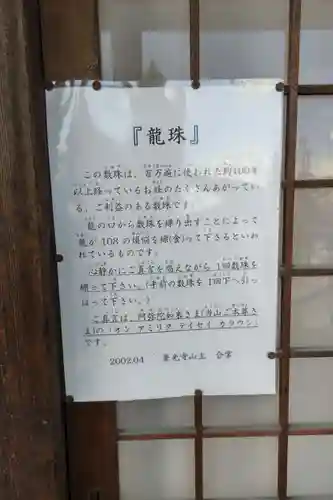 『龍珠』
この数珠は、百万遍に使われた約100年
以上経っているお経のたくさんあがってい
る、ご利益のある数珠です。
龍の口から数珠を繰り出すことによって
龍が108の煩悩を繰(食)って下さるといわ
れているものです。
心静かにご真言を唱えながら1回数珠を
繰って下さい。(手前の数珠を1回下へ引っ
ぱって下さい。)
ご真言は、阿弥陀如来さま(当山ご本尊さ
まの)「オン アミリタ テイセイ カラウン」
です。
2002.04 山主 合掌